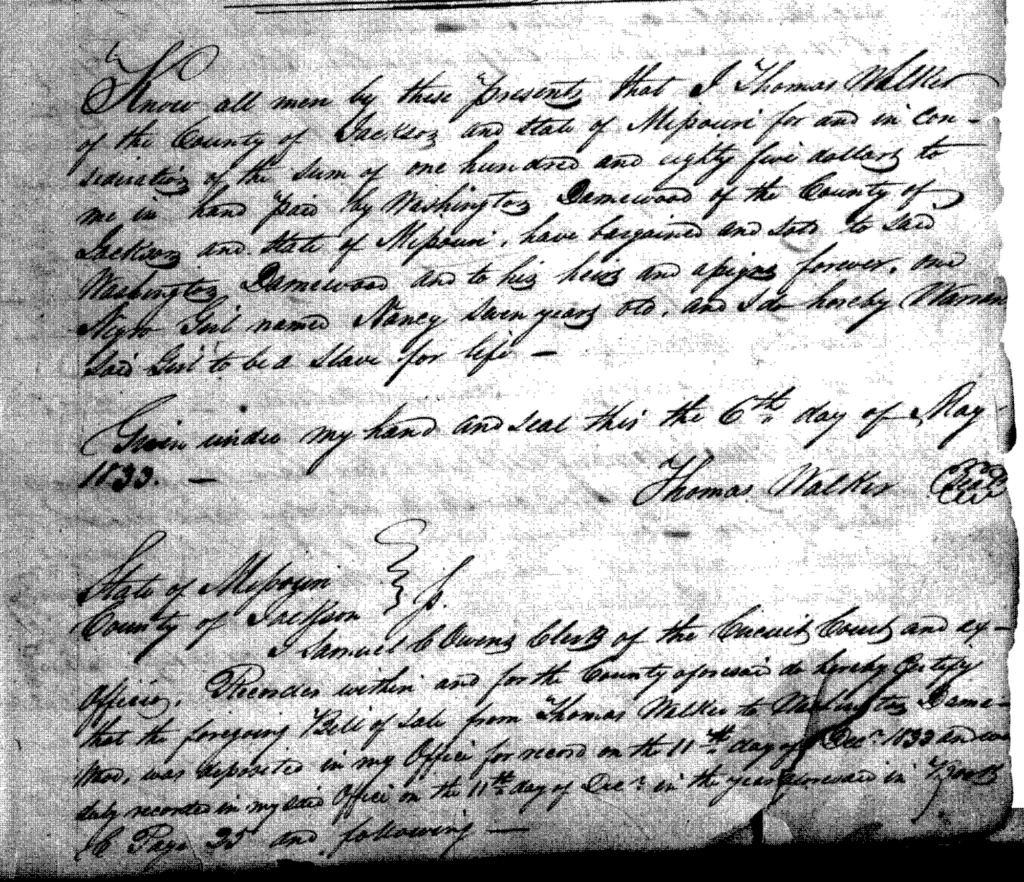 Know all men by these presents that I Thomas Walker
of the County of Jackson and State of Missouri for and in Con-
sideration of the sum of one hundred and eighty five dollars to
me in hand paid by Washington Damewood of the County of
Jackson and State of Missouri, have bargained and sold to said
Washington Damewood and to his heirs and assigns forever, one
Negro Girl named Nancy seven years old, and I do hereby Warran
said Girl to be a slave for life —
Given under my hand and seal this the 6th day of May
1833. —
Thomas Walker Seal
State of Missouri
County of Jackson
I Samuel C Owens Clerk of the Circuit Court and ex-
officio, Recorder within and for the County aforesaid do hereby Certify
that the foregoing Bill of Sale from Thomas Walker to Washington Dame-
wood, was deposited in my Office for record on the 11th day of Decr 1833 and was
duly recorded in my said Office on the 11th day of Decr in the year aforesaid in Book
C Page 35 and following —